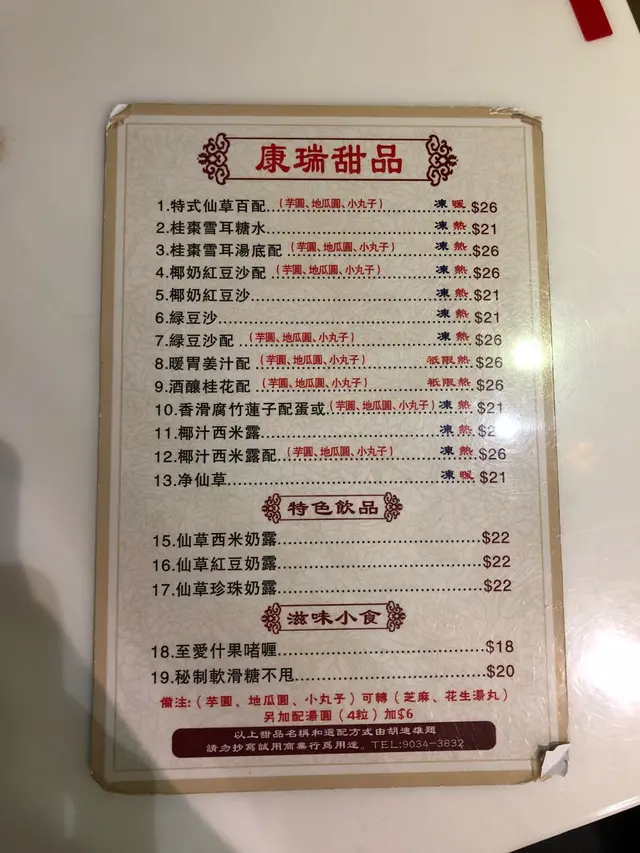 康瑞甜品
1.特式仙草百配...(芋圓、地瓜圓、小丸子)...凍 暖 $26
2.桂棗雪耳糖水...凍 熱 $21
3.桂棗雪耳湯底配(芋圓、地瓜圓、小丸子)...凍 熱 $26
4.椰奶紅豆沙配(芋圓、地瓜圓、小丸子)...凍 熱 $26
5.椰奶紅豆沙...凍 熱 $21
6.緑豆沙...凍 熱 $21
7.緑豆沙配(芋圓、地瓜圓、小丸子)...凍 熱 $26
8.暖胃姜汁配(芋圓、地瓜圓、小丸子)...祇限熱 $26
9.酒釀桂花配(芋圓、地瓜圓、小丸子)...祇限熱 $26
10.香滑腐竹蓮子配蛋或(芋圓、地瓜圓、小丸子)凍 熱 $21
11.椰汁西米露...凍 熱
12.椰汁西米露配(芋圓、地瓜圓、小丸子)...凍 熱 $26
13.净仙草...凍 暖 $21
特色飲品
15.仙草西米奶露...$22
16.仙草紅豆奶露...$22
17.仙草珍珠奶露...$22
滋味小食
18.至愛什果啫喱...$18
19.秘制軟滑糖不甩...$20
備注:(芋圓、地瓜圓、小丸子)可轉(芝麻、花生湯丸)
另加配湯圓(4粒)加$6
以上甜品名稱和選配方式由胡速雄題
請勿抄寫試用商業行爲用途。TEL:9034-3832